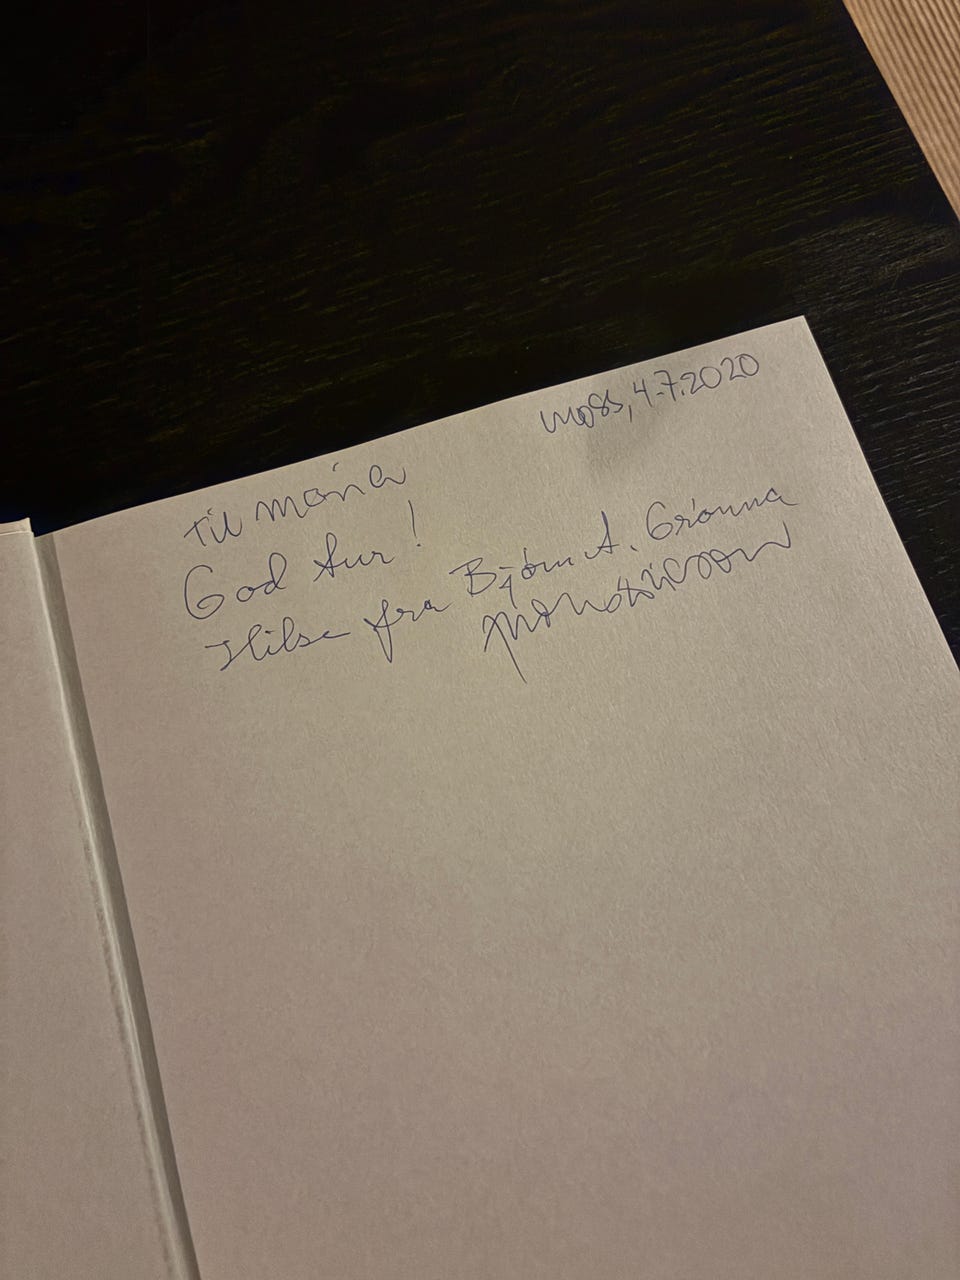 Moss, 4.7.2020
Til Maria
God tur!
Hilse fra Bjørn A.